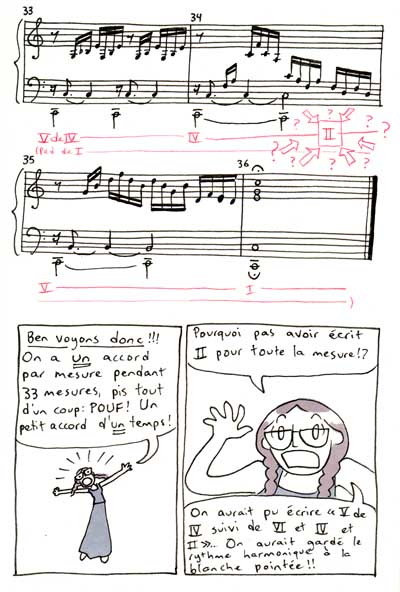 33 34
V de IV IV II ? ? ? ? ? ? ? ?
(Péd de I
35 36
V I
)
Ben voyons donc!!!
On a un accord
par mesure pendant
33 mesures, pis tout
d'un coup: POUF! Un
petit accord d'un temps!
Pourquoi pas avoir écrit
II pour toute la mesure!?
On aurait pu écrire «V de
IV suivi de VI et IV et
II».. On aurait gardé le
rythme harmonique à la
blanche pointée!!